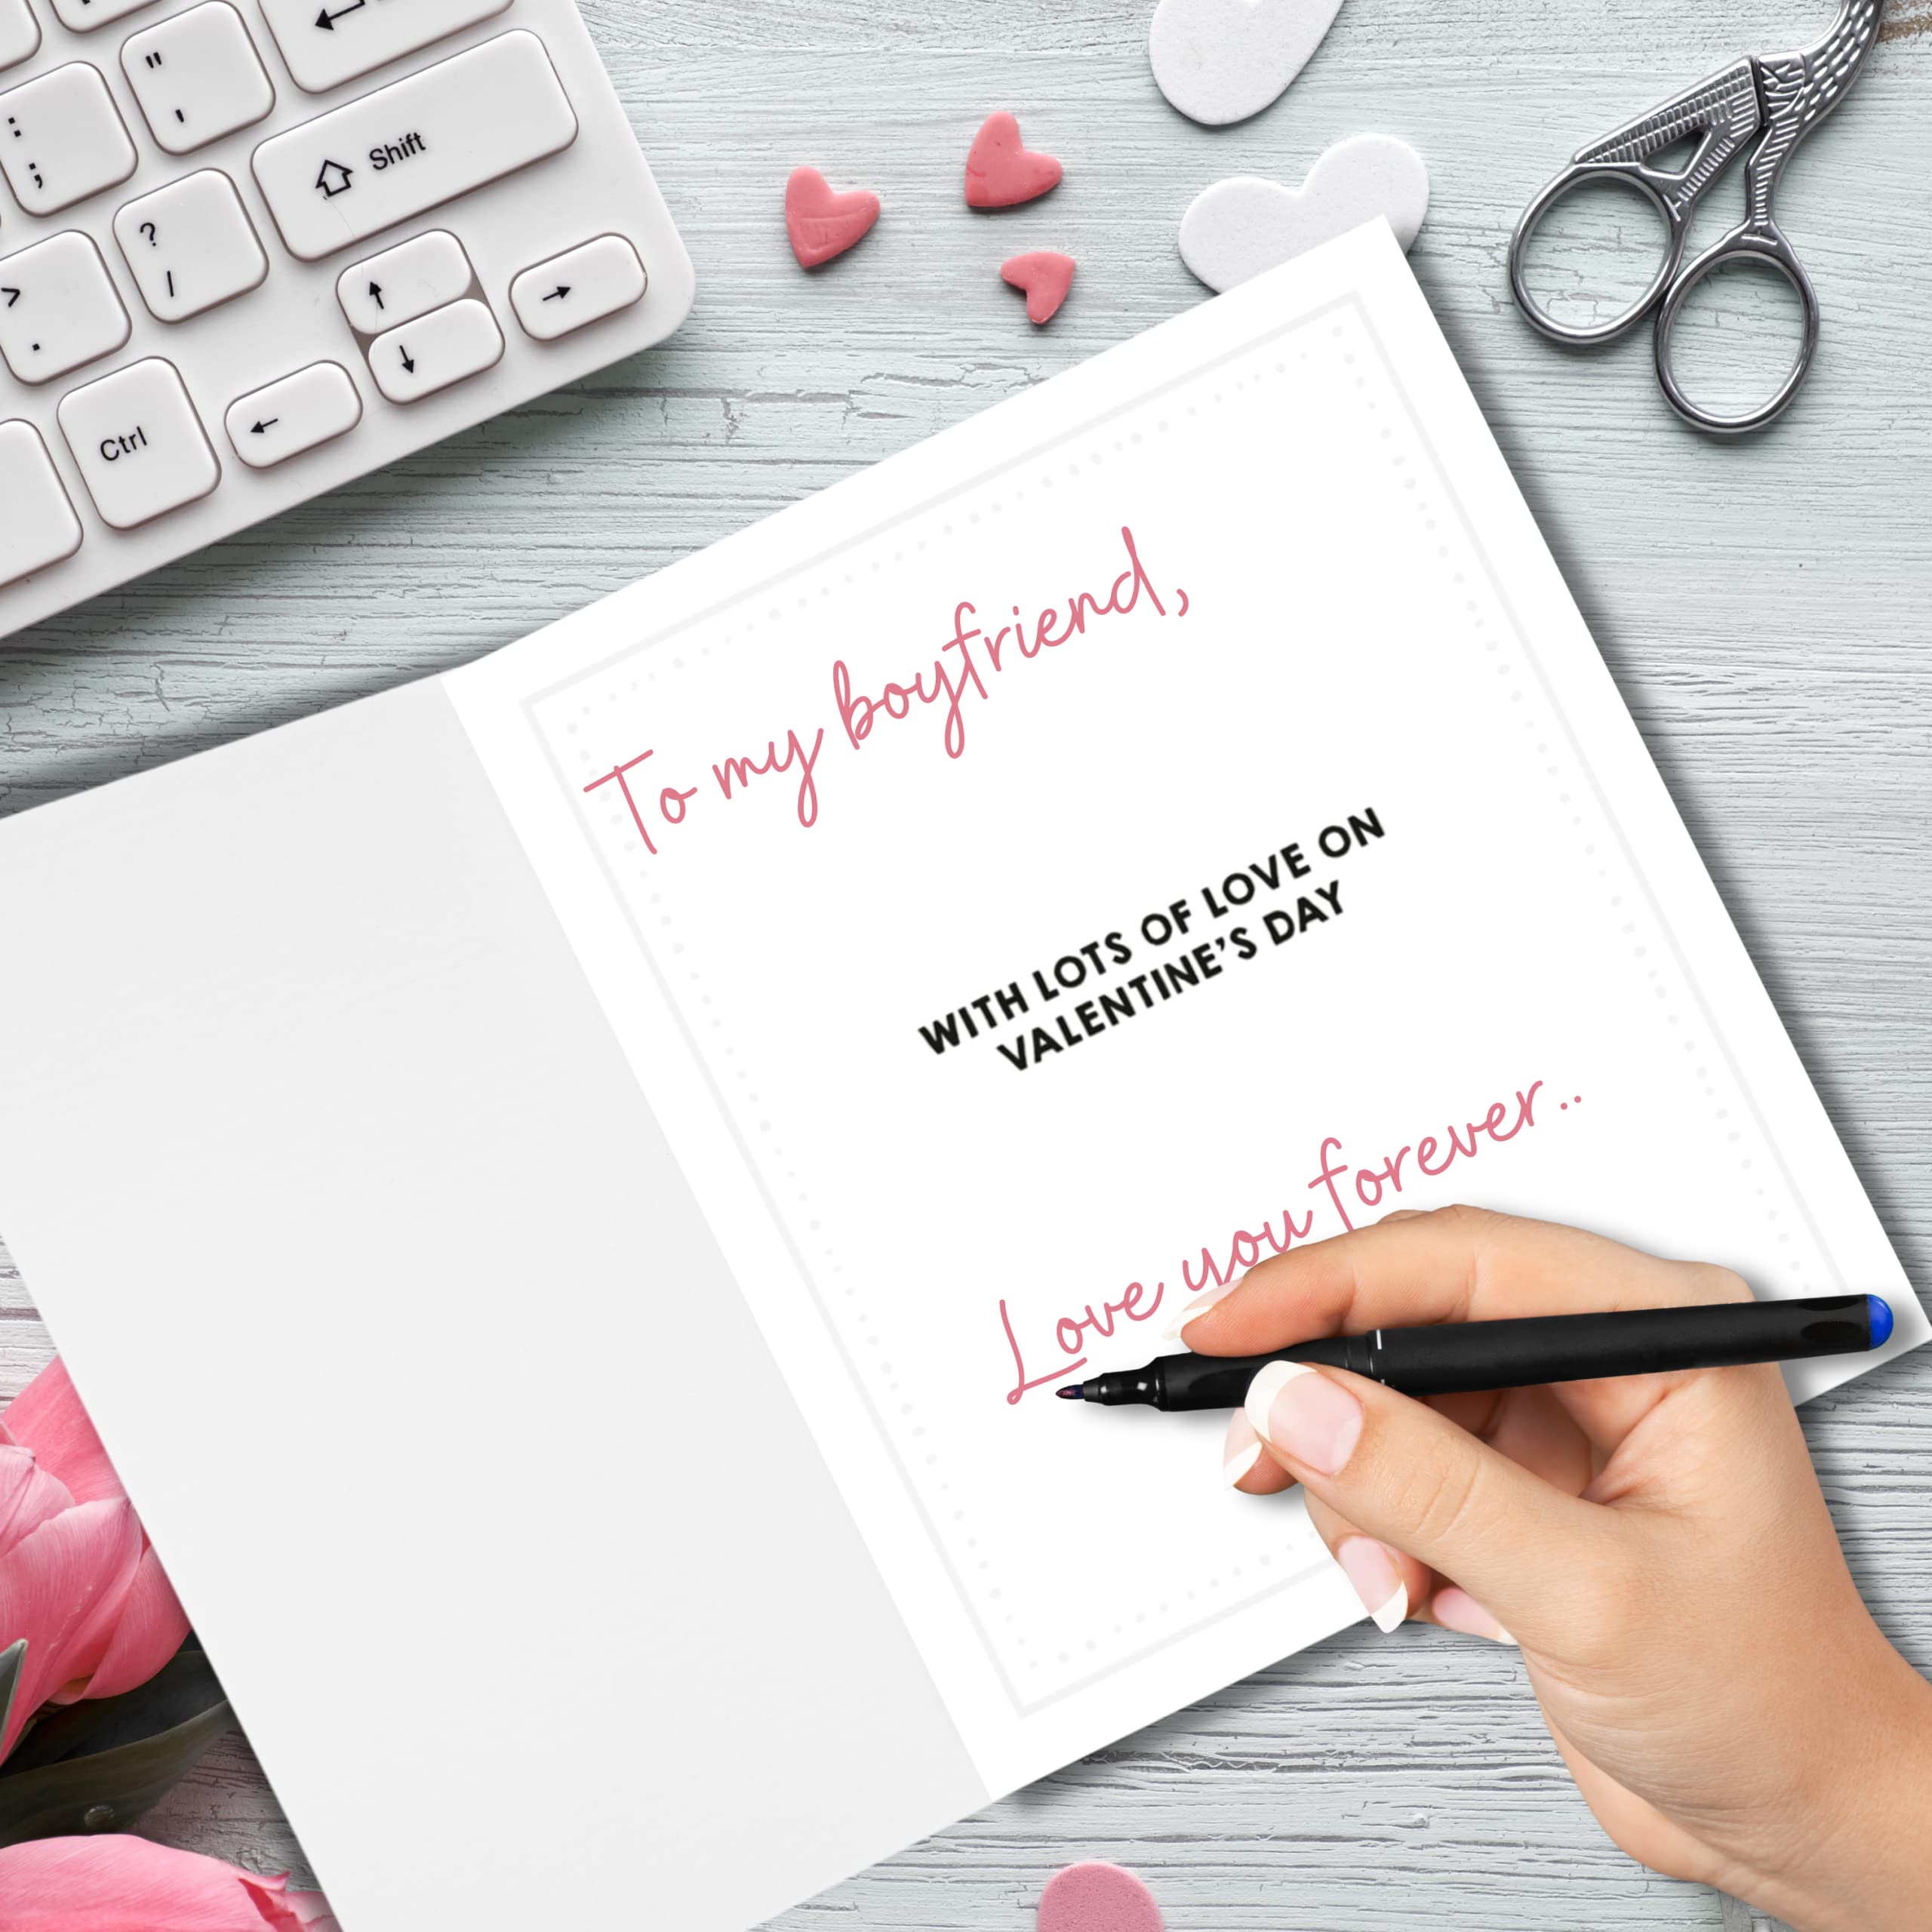 "
'
:
;
Shift
?
/
>
.
Ctrl
To my boyfriend,
WITH LOTS OF LOVE ON
VALENTINE'S DAY
Love you forever..